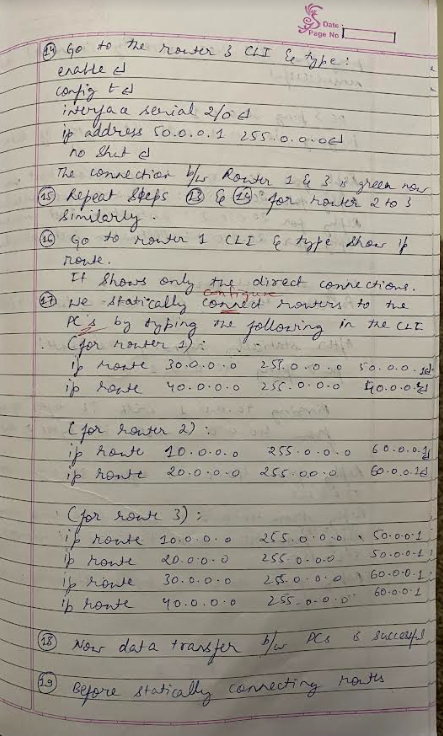 Date :
Page No
⑭ Go to the router 3 CLI & type :
enable ↵
config t ↵
interfaca serial 2/0 ↵
ip address 50.0.0.1 255.0.0.0 ↵
no shut ↵
The connection b/w Router 1 & 3 is green now
⑮ Repeat Steps ⑬ & ⑭ for router 2 to 3
similarly .
⑯ Go to router 1 CLI & type show ip
route.
It shows only the direct connections.
configure
⑰ We statically connect routers to the
PC's by typing the following in the CLI
(for router 1) :
ip route 30.0.0.0 255.0.0.0 50.0.0.1↵
ip route 40.0.0.0 255.0.0.0
(for router 2) :
ip route 10.0.0.0 255.0.0.0 60.0.0.1↵
ip route 20.0.0.0 255.0.0.0 60.0.0.1↵
(for route 3) :
ip route 10.0.0.0 255.0.0.0 50.0.0.1
ip route 20.0.0.0 255.0.0.0 50.0.0.1
ip route 30.0.0.0 255.0.0.0 60.0.0.1
ip route 40.0.0.0 255.0.0.0 60.0.0.1
⑱ Now data transfer b/w PCs is successful
⑲ Before statically connecting routes